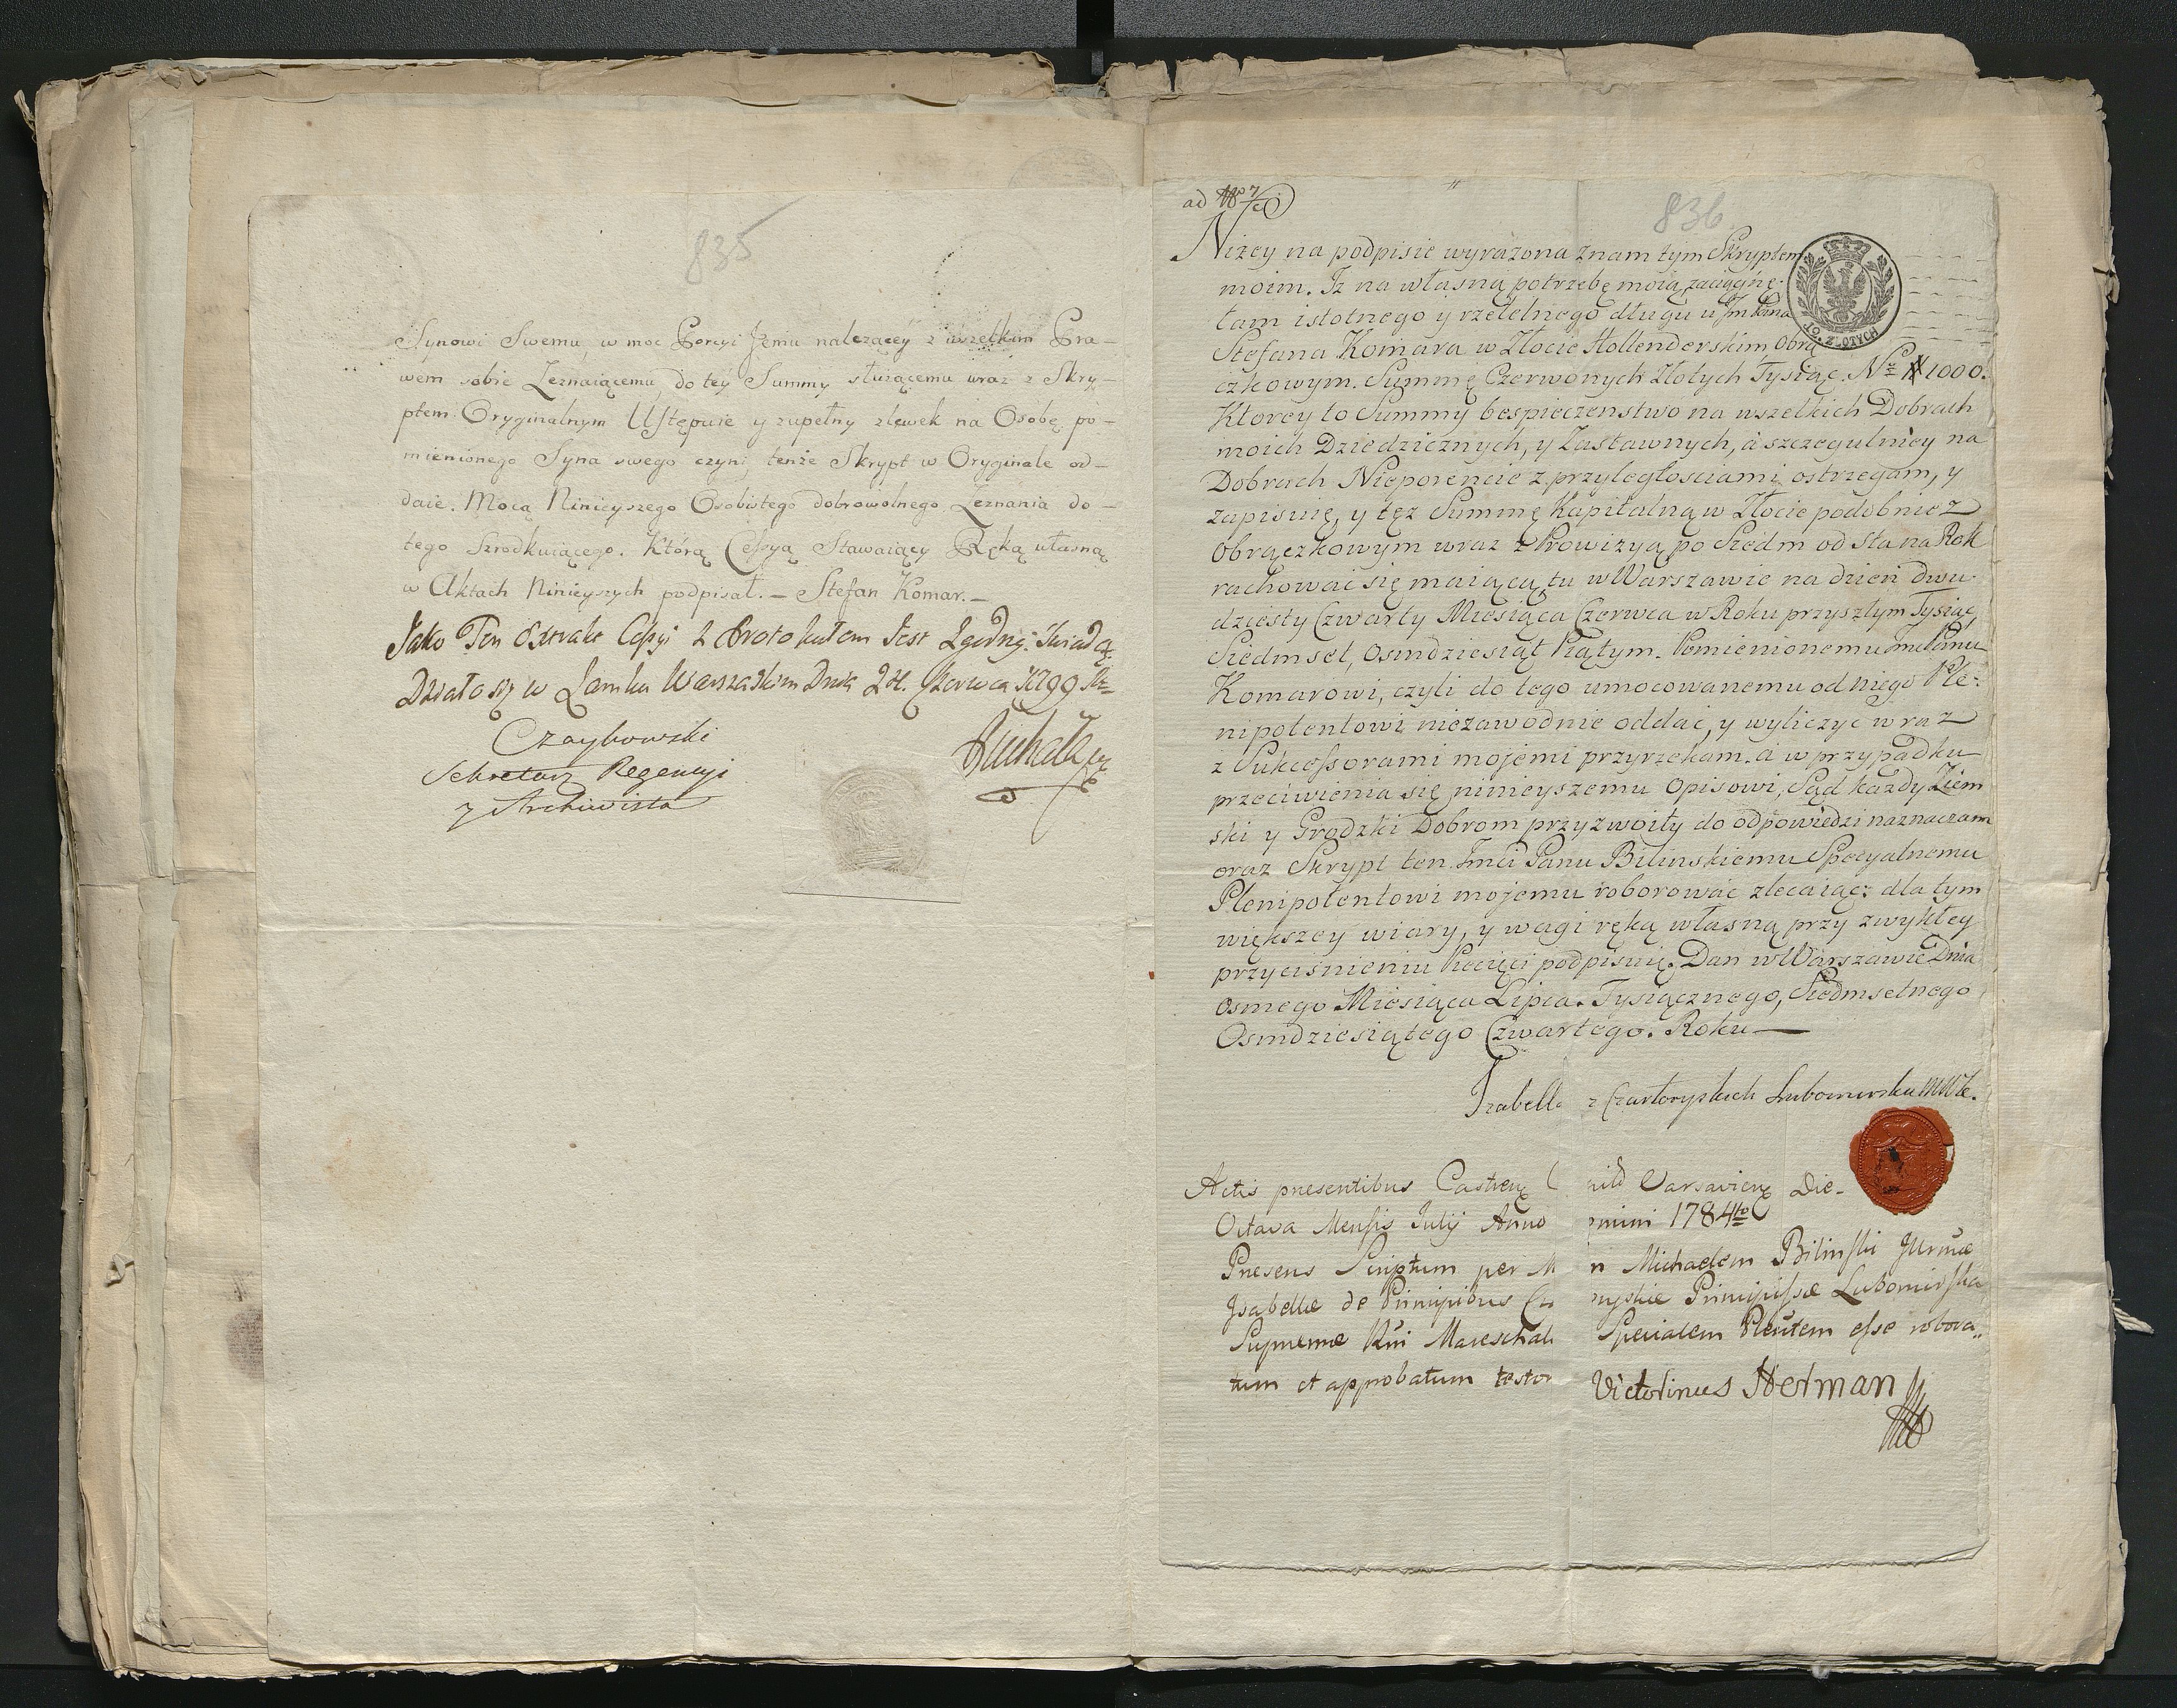 835
Synowi Swemu, w moc Porcyi Jemu nalezącey z wszelkim Pra-
wem sobie Zeznaiącemu, do tey Summy służącemu wraz z Skry-
ptem Oryginalnym Ustępuie y zupełny zlewek na Osobę po-
mienionego Syna swego czyni, tenże Skrypt w Oryginale od-
daie. Mocą Ninieyszego Osobistego dobrowolnego Zeznania do-
tego Srzodkuiącego. Którą Cessyą Stawaiący Ręką własną
w Aktach Ninieyszych podpisał. - Stefan Komar. -
Jako Ten Extrakt Cessyi z Protokułem Jest Zgodny. Swiadczę
Działo się w Zamku Warszawskim Dnia 24. Czerwca 1799
Czaykowski
Sekretarz Regencyi
y Archiwista
836
ad No 7
Niżey na podpisie wyrażona znam tym Skryptem
moim. Iż na własną potrzebę moią zaciągnę-
łam istotnego y rzetelnego długu u Jm Pana
Stefana Komara w Złocie Hollenderskim Obrą
czkowym. Summę Czerwonych Złotych Tysiąc. Nro 1000.
Ktorey to Summy bespieczenstwo na wszelkich Dobrach
moich Dziedzicznych, y Zastawnych, a szczegulniey na
Dobrach Nieporencie z przyległosciami ostrzegam, y
zapisuię, y tęż Summę Kapitalną w Złocie podobnież
Obrączkowym wraz z Prowizyą po Siedm od sta na Rok
rachować się maiącą, tu w Warszawie na dzień dwu
dziesty Czwarty Miesiąca Czerwca w Roku przyszłym Tysiąc
Siedmset, Osmdziesiąt Piątym. Pomienionemu Jmu Panu
Komarowi, czyli do tego umocowanemu od niego Ple-
nipotentowi niezawodnie oddać, y wyliczyć wraz
z Sukcessorami mojemi przyrzekam. a w przypadku
przeciwienia się ninieyszemu Opisowi, Sąd każdy Ziem
ski y Grodzki Dobrom przyzwoity do odpowiedzi naznaczam
oraz Skrypt ten Jmci Panu Bilinskiemu Specyalnemu
Plenipotentowi mojemu roborować zlecaiąc: dla tym
większey wiary, y wagi ręką własną przy zwykłey
przycisnieniu Pieczęci podpisuię. Dan w Warszawie Dnia
Osmego Miesiąca Lipca. Tysiącznego, Siedmsetnego
Osmdziesiątego Czwartego. Roku
10. ZŁOTYCH
Izabella z Czartoryskich Lubomirska MWK.
Actis presentibus Castren Varsavien Die
Octava Mensis Julij Anno 1784to
Presens Scriptum per Michaelem Bilinski
Isabellae de Principibus Principissae Lubomirska
Supremae Mareschal Specialem Plentem esse robora
tum et approbatum testor Victorinus Herman